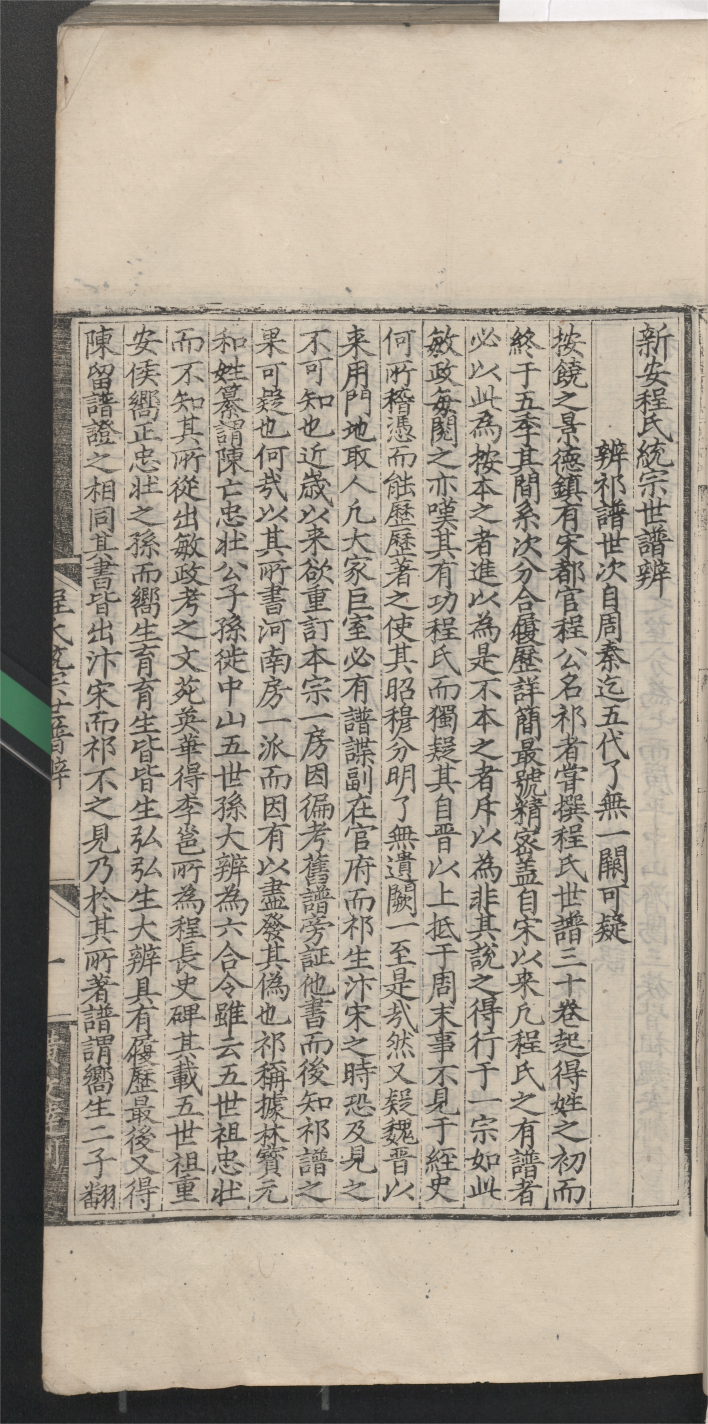 新安程氏統宗世譜辨
辨祁譜世次自周秦迄五代了無一闕可疑
按饒之景德鎮有宋都官程公名祁者甞撰程氏世譜三十卷起得姓之初而
終于五季其間系次分合履歷詳簡最號精密盖自宋以來凡程氏之有譜者
必以此為按本之者進以為是不本之者斥以為非其說之得行于一宗如此
敏政每閱之亦嘆其有功程氏而獨疑其自晋以上抵于周末事不見于經史
何所稽憑而能歷歷著之使其昭穆分明了無遺闕一至是㢤然又疑魏晋以
来用門地取人凡大家巨室必有譜諜副在官府而祁生汴宋之時恐及見之
不可知也近歲以来欲重訂本宗一房因徧考舊譜旁証他書而後知祁譜之
果可疑也何㢤以其所書河南房一派而因有以盡發其偽也祁稱據林寳元
和姓纂謂陳亡忠壮公子孫徙中山五世孫大辨為六合令雖云五世祖忠壮
而不知其所從出敏政考之文苑英華得李邕所為程長史碑其載五世祖重
安侯嚮正忠壮之孫而嚮生育育生皆皆生弘弘生大辨具有履歷最後又得
陳留譜證之相同其書皆出汴宋而祁不之見乃於其所著譜謂嚮生二子翻
程氏統宗世譜辨
一